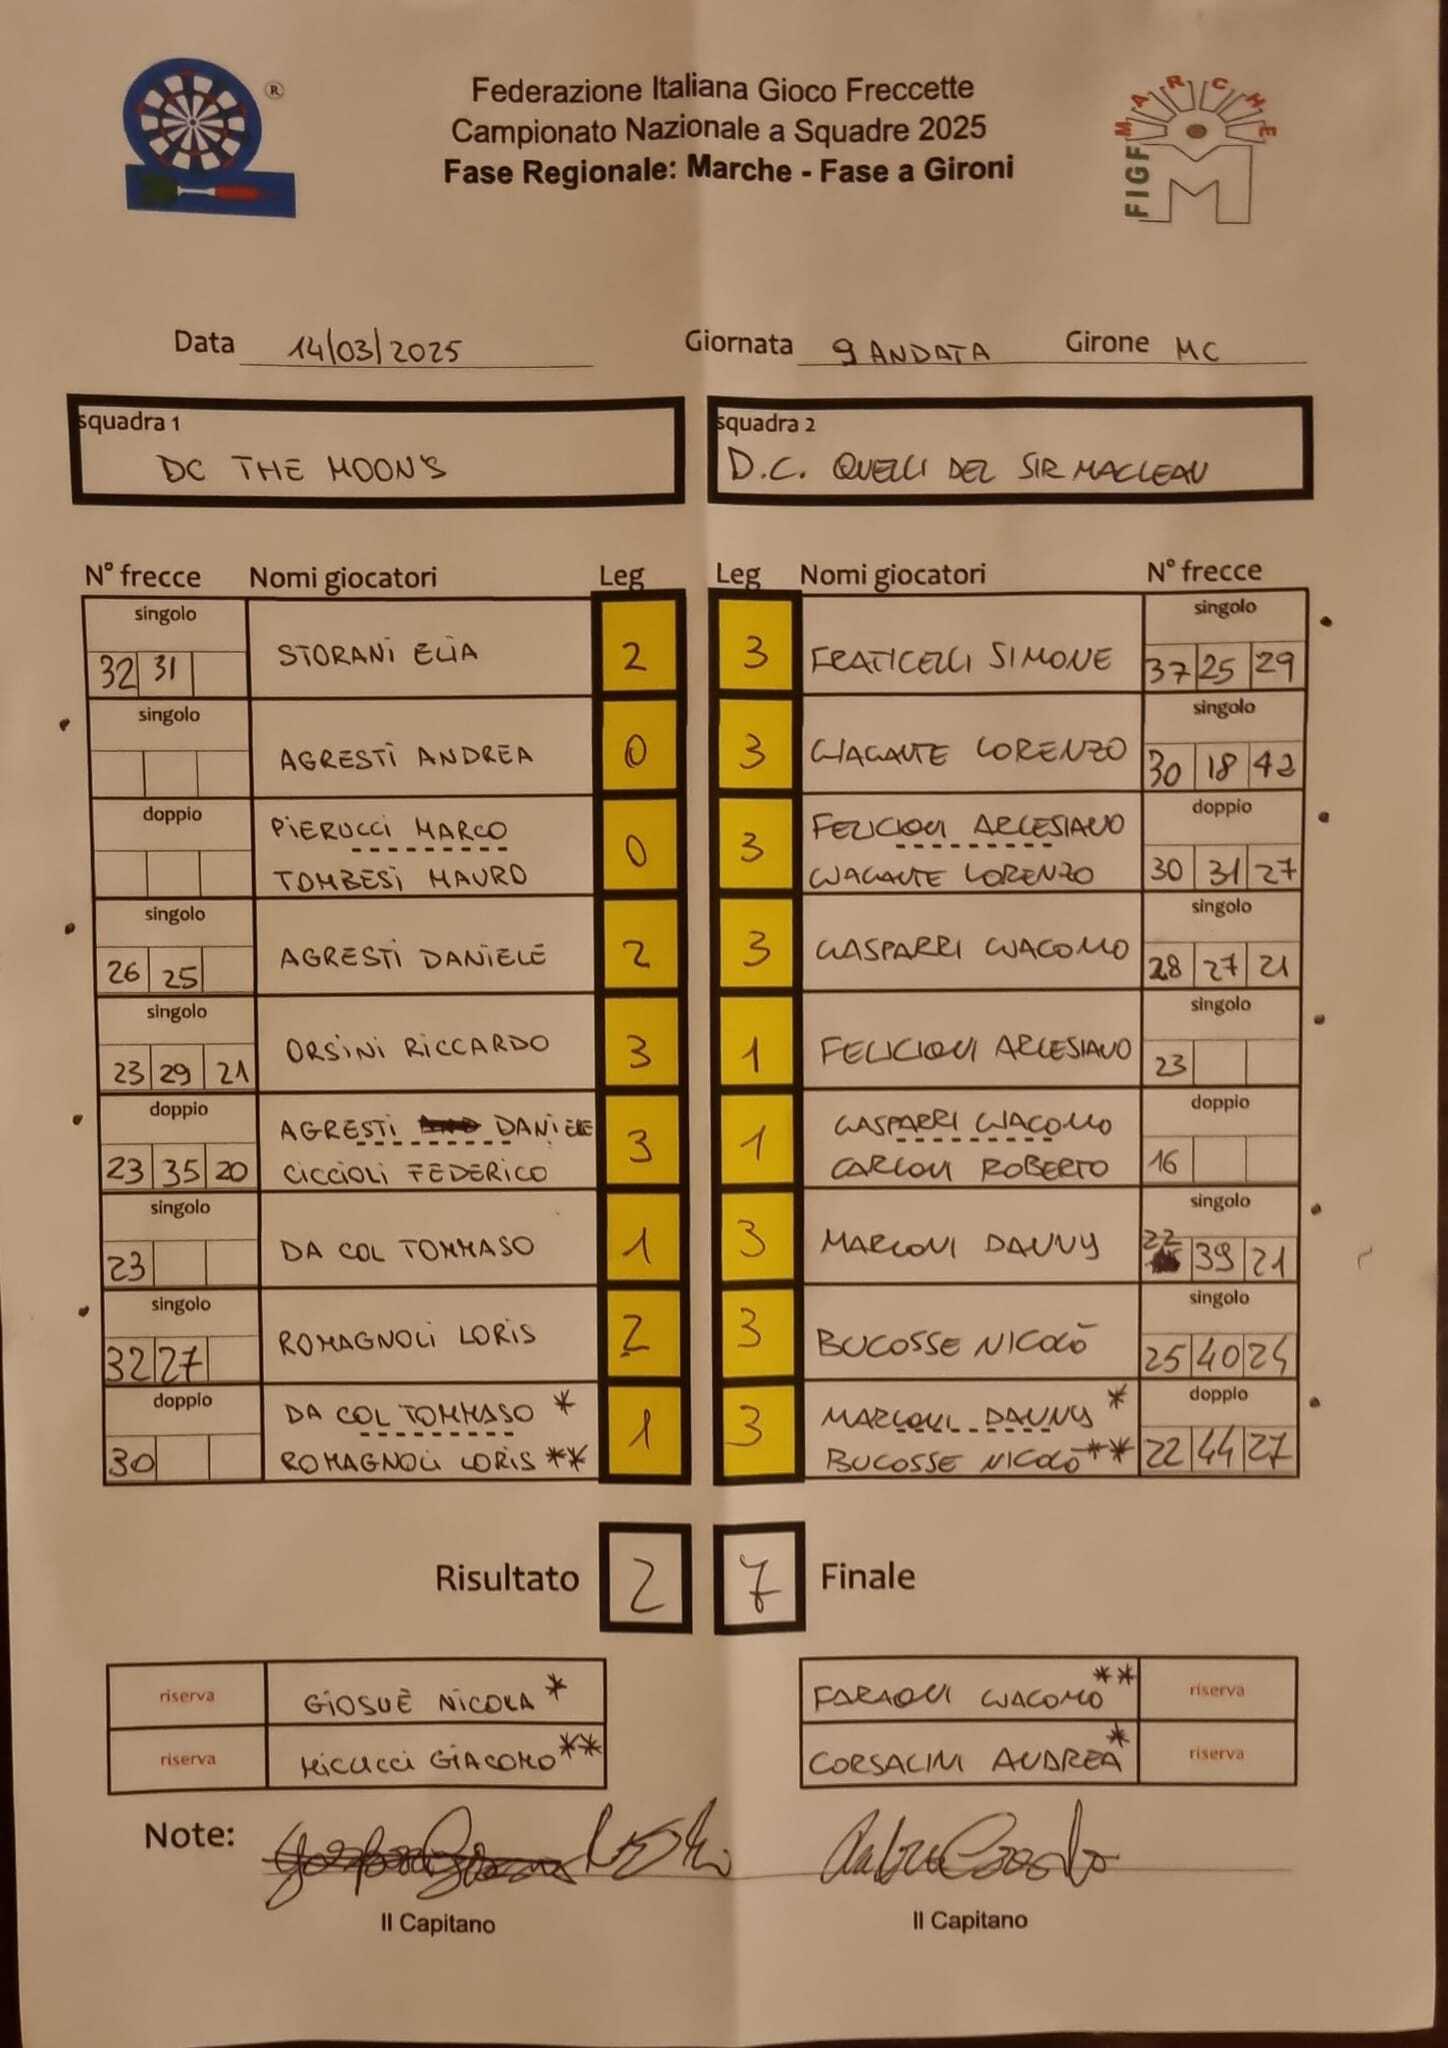 ®
MARCHE
FIGF
M
Federazione Italiana Gioco Freccette
Campionato Nazionale a Squadre 2025
Fase Regionale: Marche - Fase a Gironi
Data 14/03/2025 Giornata 9 ANDATA Girone MC
squadra 1
DC THE MOON'S
squadra 2
D.C. QUELLI DEL SIR MACLEAN
N° frecce Nomi giocatori Leg Leg Nomi giocatori N° frecce
singolo singolo
32 31 STORANI ELIA 2 3 FRATICELLI SIMONE 37 25 29
singolo singolo
AGRESTI ANDREA 0 3 GIAGANTE LORENZO 30 18 42
doppio PIERUCCI MARCO 0 3 FELICIONI ARCESIANO doppio
TOMBESI MAURO GIAGANTE LORENZO 30 31 27
singolo singolo
26 25 AGRESTI DANIELE 2 3 GASPARRI GIACOMO 28 27 21
singolo singolo
23 29 21 ORSINI RICCARDO 3 1 FELICIONI ARCESIANO 23
doppio AGRESTI DANIELE 3 1 GASPARRI GIACOMO doppio
23 35 20 CICCIOLI FEDERICO CARLONI ROBERTO 16
singolo singolo
23 DA COL TOMMASO 1 3 MARCONI DANNY 22 39 21
singolo singolo
32 27 ROMAGNOLI LORIS 2 3 BUCOSSE NICOLÒ 25 40 24
doppio DA COL TOMMASO * 1 3 MARCONI DANNY * doppio
30 ROMAGNOLI LORIS ** BUCOSSE NICOLÒ ** 22 44 27
Risultato 2 7 Finale
riserva GIOSUÈ NICOLA * FARAONI GIACOMO ** riserva
riserva MICUCCI GIACOMO ** CORSALINI ANDREA * riserva
Note:
Il Capitano Il Capitano